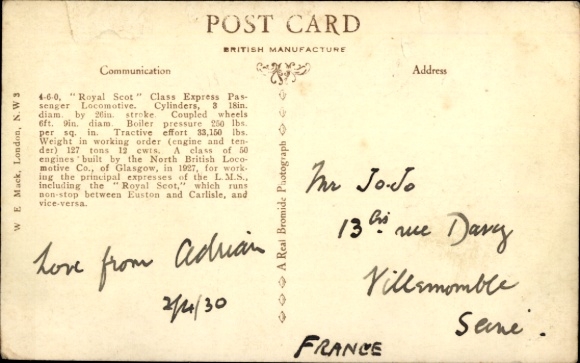 POST CARD
BRITISH MANUFACTURE
Communication
Address
4-6-0, "Royal Scot" Class Express Pas-
senger Locomotive. Cylinders, 3 18in.
diam. by 26in. stroke. Coupled wheels
6ft. 9in. diam. Boiler pressure 250 lbs.
per sq. in. Tractive effort 33,150 lbs.
Weight in working order (engine and ten-
der) 127 tons 12 cwts. A class of 50
engines built by the North British Loco-
motive Co., of Glasgow, in 1927, for work-
ing the principal expresses of the L.M.S.,
including the "Royal Scot," which runs
non-stop between Euston and Carlisle, and
vice-versa.
W E Mack, London, N.W 3
A Real Bromide Photograph
Love from Adrian
2/4/30
Mr Jo-Jo
13 bis rue Davy
Villemomble
Seine.
FRANCE